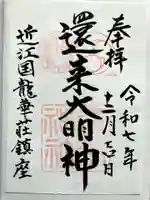 奉拝
令和七年
月 日
還来大明神
近江国龍華荘鎮座